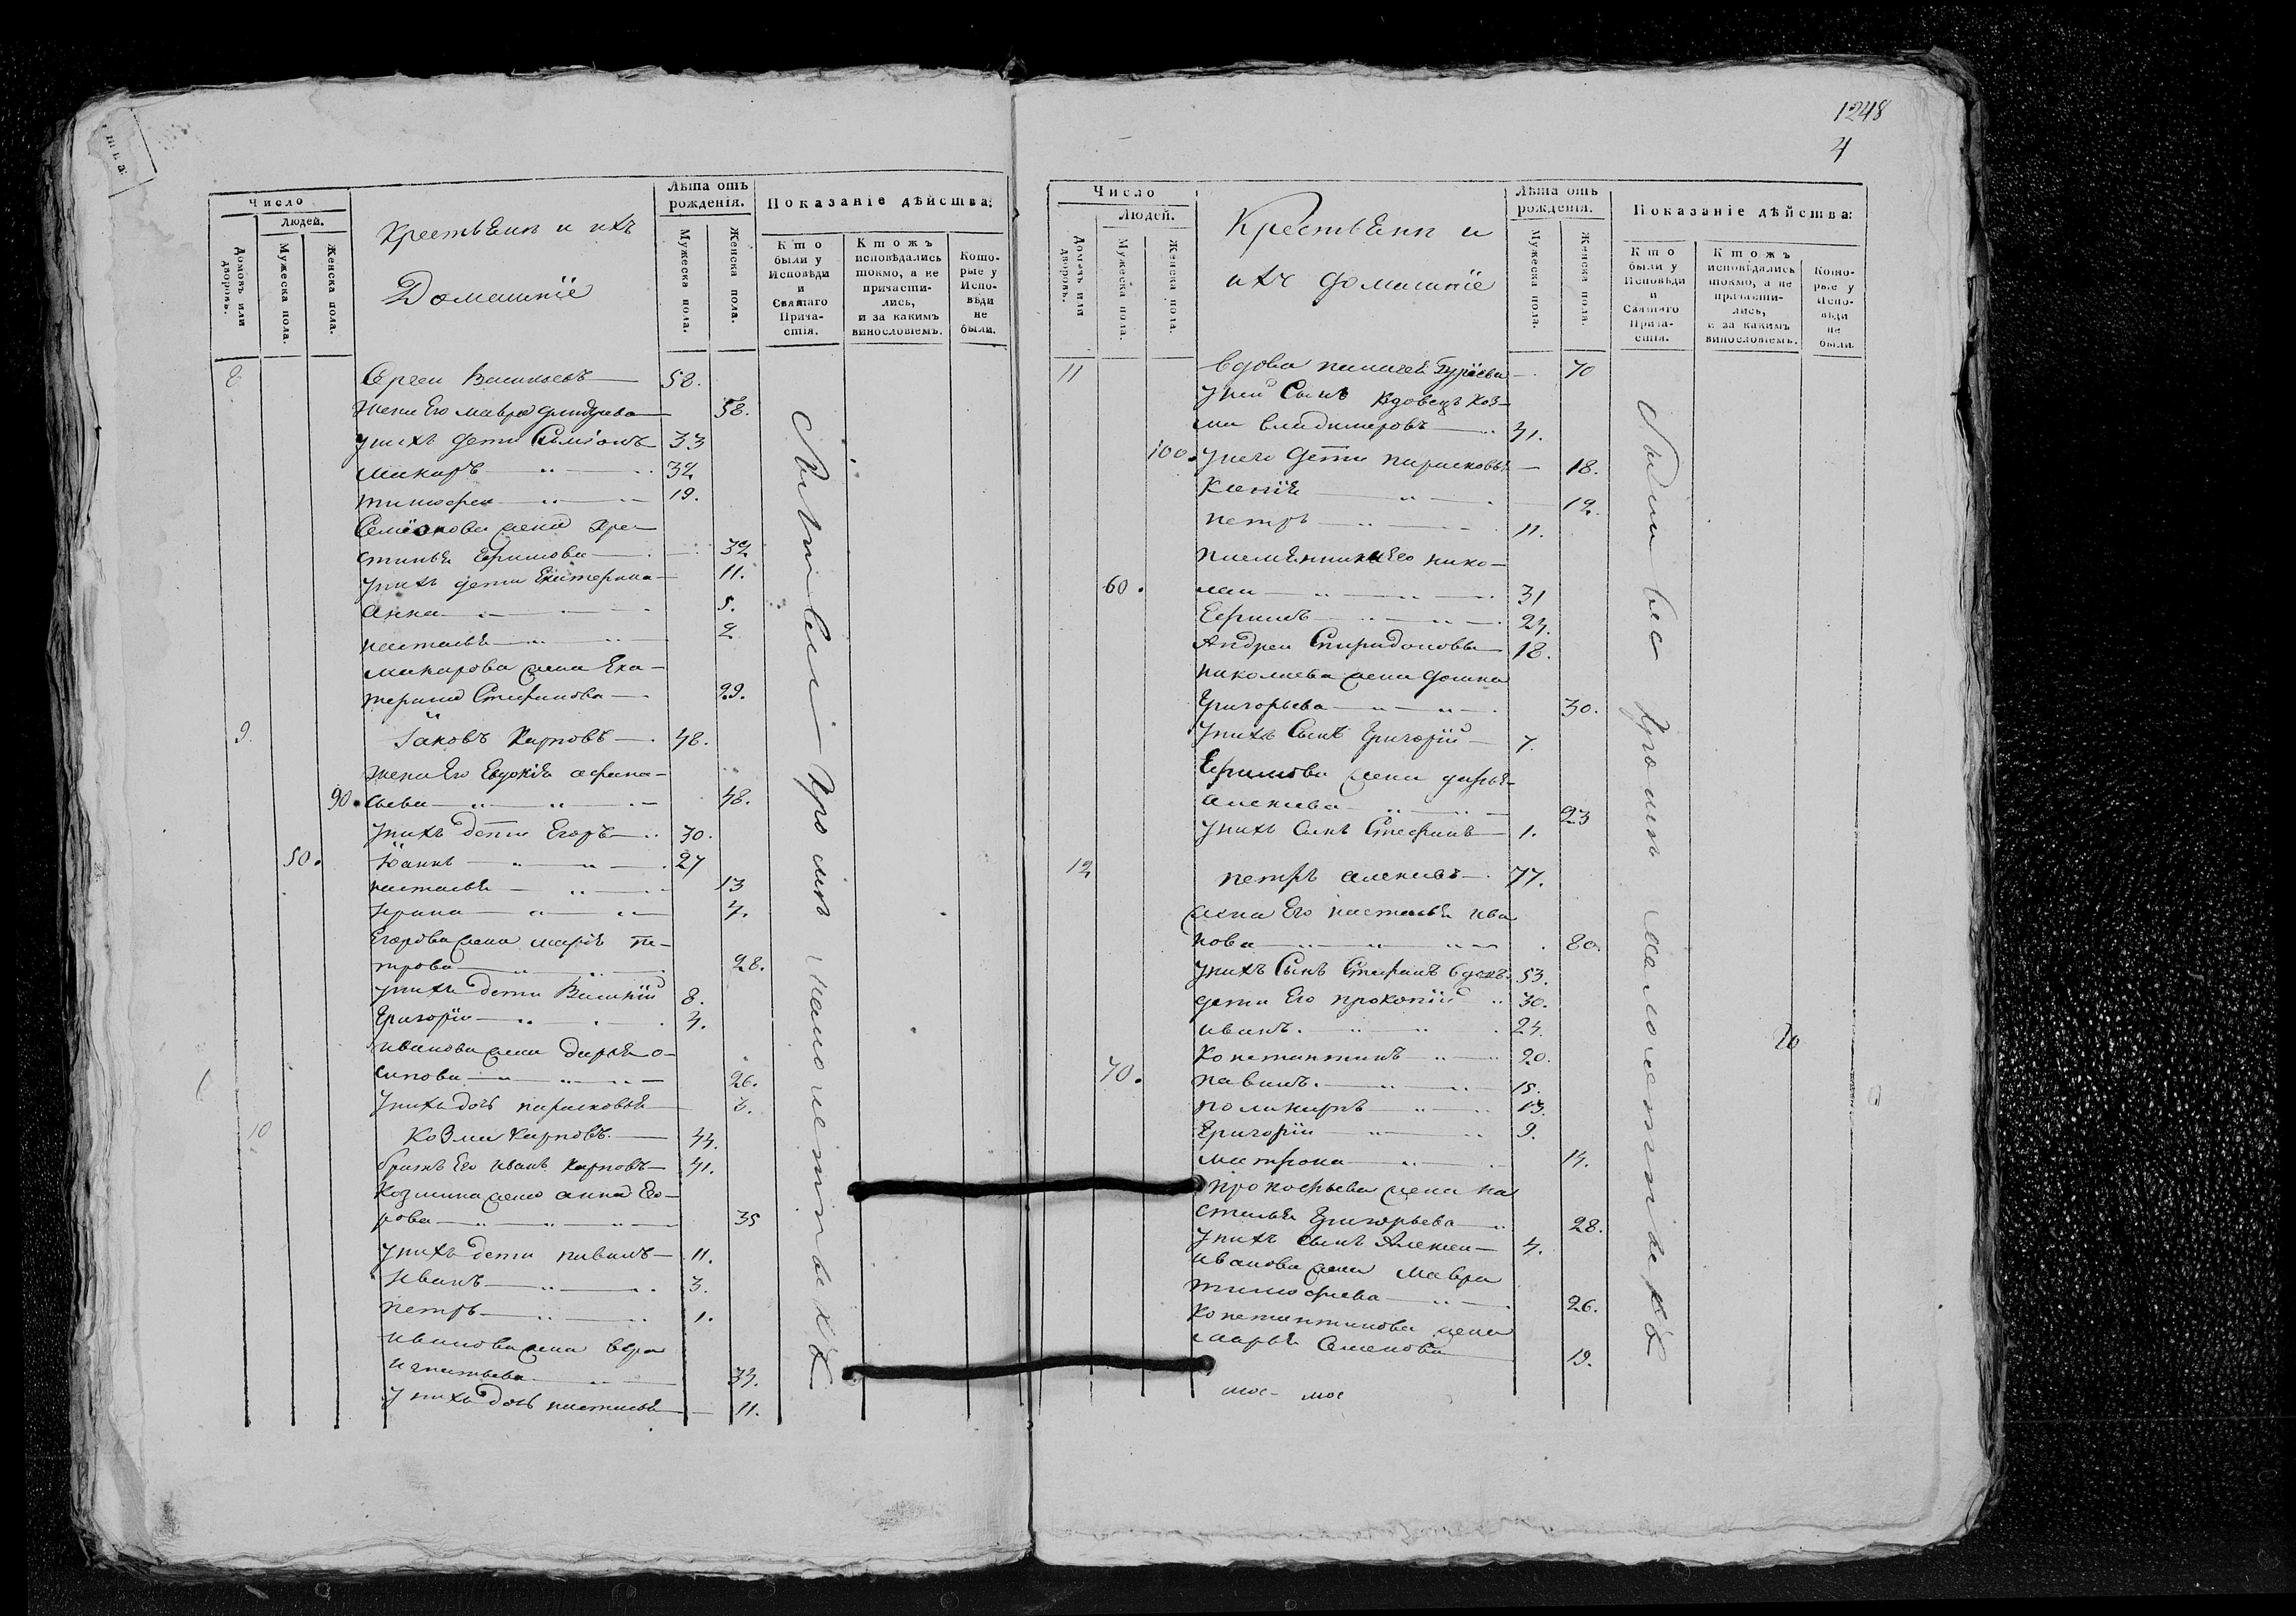 1248
4
Число
Людей.
Домовъ или дворовъ.
Мужеска пола.
Женска пола.
Крестьяни и ихъ
Домашніе
Лѣта отъ рожденія.
Мужеска пола.
Женска пола.
Показаніе дѣйства:
Кто были у Исповѣди и Святаго Причастія.
Ктожъ исповѣдались токмо, а не причастились, и за какимъ винословіемъ.
Которые у Исповѣди не были.
8 Сергеи Васильевъ 58.
Жена Его мавра 58.
унихъ дети Симіонъ 33
макаръ 32
тимофеи 19.
Семіонова жена Хре-
стинья Ефимова 32
унихъ дети Екатерина 11.
Анна 5.
настасья 2
макарова жена Ека-
терина Стефанова 29.
9. Іаковъ Карповъ 48.
Жена Его Евдокія афана-
90. сьева 48.
унихъ дети Егоръ 30.
50. Іоаннъ 27
настасья 13
Ирина 4.
Егорова жена марія пе-
трова 28.
унихъ дети Василій 8.
Григоріи 4.
иванова жена дарья о-
сипова 26.
унихъ дочь парасковья 2.
10 Козма Карповъ 44.
братъ Его иванъ Карповъ 41.
Козмина жена анна Его-
рова 35
унихъ дети павилъ 11.
Иванъ 3.
петръ 1.
иванова жена вера
игнатьева 34.
унихъ дочь настасья 11.
кромѣ малолетныхъ
Число
Людей.
Домовъ или дворовъ.
Мужеска пола.
Женска пола.
Крестьяни и
ихъ домашніе
Лѣта отъ рожденія.
Мужеска пола.
Женска пола.
Показаніе дѣйства:
Кто были у Исповѣди и Святаго Причастія.
Ктожъ исповѣдались токмо, а не причастились, и за какимъ винословіемъ.
Которые у Исповѣди не были.
11 вдова пилагея Гуріева 70
уней Сынъ вдовецъ Коз-
ма владимеровъ 41.
100. унего дети парасковья 18.
Ксенія 12.
петръ 11.
племянники Его нико-
60. лаи 31
Ефимъ 24.
Андреи Спиридоновы 18.
николаева жена домна
Григорьева 30.
унихъ Сынъ Григорій 7.
Ефимова жена дарья
алексиева 23
унихъ Сынъ Стефанъ 1.
12 петръ алексивъ 77.
жена Его настасья ива
нова 80.
унихъ Сынъ Стефанъ вдовъ 53.
дети Его прокопій 30.
иванъ. 24.
Константинъ 20.
70. павилъ. 15.
поликарпъ 13.
Григоріи 9.
матрона 14.
прокофьева жена на
стасья Григорьева 28.
унихъ сынъ Алексеи 4.
иванова жена мавра
тимофиева 26.
Константинова жена
марья Семенова 19.
кромѣ малолетныхъ